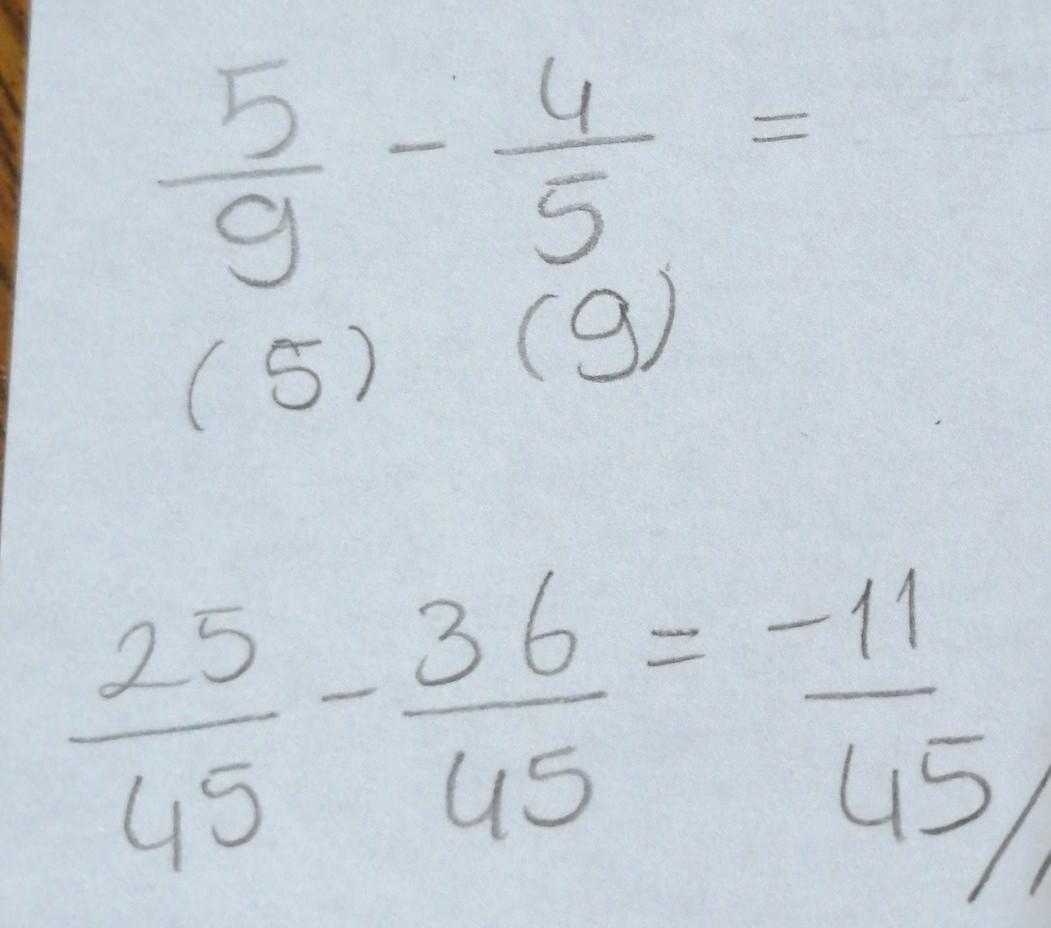 5/9 - 4/5 =
(5) (9)
25/45 - 36/45 = -11/45 //